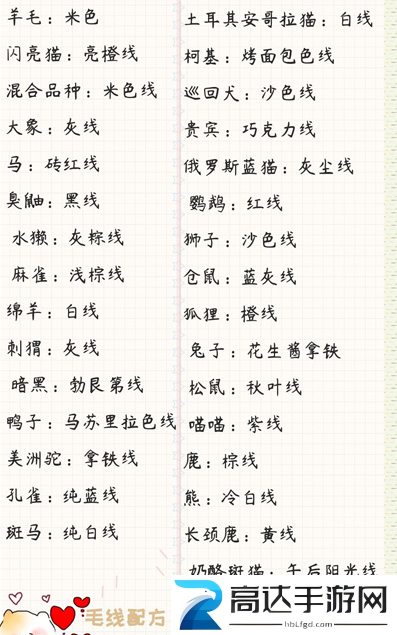 羊毛：米色
闪亮猫：亮橙线
混合品种：米色线
大象：灰线
马：砖红线
臭鼬：黑线
水獭：灰粽线
麻雀：浅棕线
绵羊：白线
刺猬：灰线
暗黑：勃艮第线
鸭子：马苏里拉色线
美洲驼：拿铁线
孔雀：纯蓝线
斑马：纯白线
土耳其安哥拉猫：白线
柯基：烤面包色线
巡回犬：沙色线
贵宾：巧克力线
俄罗斯蓝猫：灰尘线
鹦鹉：红线
狮子：沙色线
仓鼠：蓝灰线
狐狸：橙线
兔子：花生酱拿铁
松鼠：秋叶线
喵喵：紫线
鹿：棕线
熊：冷白线
长颈鹿：黄线
奶酪斑猫：午后阳光线
毛线配方
高达手游网
hbLfgd.com